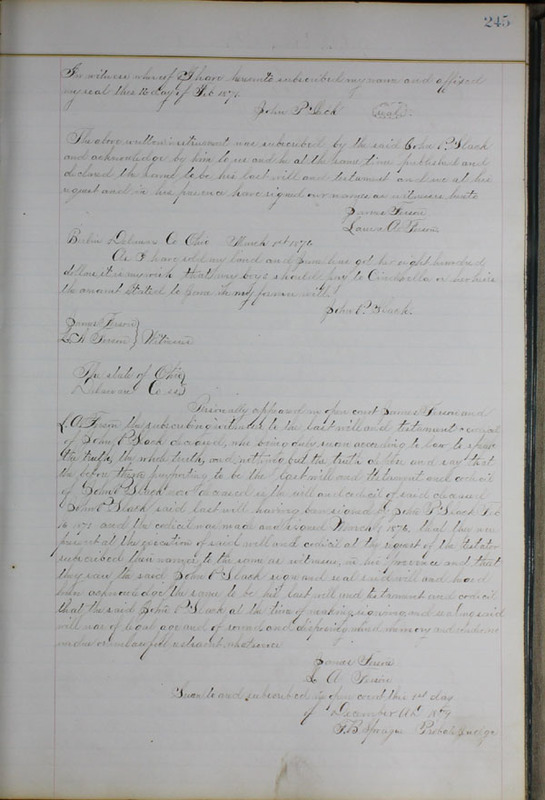 245
In witness whereof I have hereunto subscribed my name and affixed
my seal this 16 day of Feb 1871.
John P. Slack (seal)
The above written instrument was subscribed by the said John P. Slack
and acknowledge by him to us and he at the same time published and
declared the same to be his last will and testament and we at his
request and in his presence have signed our names as witnesses hereto
James Ferson
Laura A Ferson
Berlin Delaware Co Ohio March 1st 1876
As I have sold my land and has got eight hundred
dollars it is my wish that my boys should pay to Cinderella or her heirs
the amount stated to June in my former will
John P. Slack.
James Ferson
L. A Ferson } Witnesses
The state of Ohio
Delaware Co ss
Personally appeared in open court James Ferson and
L. A. Ferson the subscribing witnesses to the last will and testament & codicil
of John P. Slack deceased, who being duly sworn according to law to speak
the truth, the whole truth, and nothing but the truth depose and say that
the before these purporting to be the last will and testament and codicil
of John P. Slack now deceased is the will and codicil of said deceased
John P. Slack said last will having been signed by John P. Slack Feb
16 1871 and the codicil was made and signed March 1 1876, that they were
present at the execution of said will and codicil at the request of the testator
subscribed their names to the same as witnesses in his presence and that
they saw the said John P. Slack sign and seal said will and heard
him acknowledge the same to be his last will and testament and codicil
that the said John P. Slack at the time of making signing and sealing said
will was of legal age and of sound and disposing mind memory and
under any unlawful restraint whatsoever
James Ferson
L. A Ferson
Sworn to and subscribed in open court this 1st day
of December AD 1879
F. B. Sprague Probate Judge